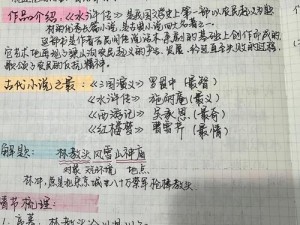 作品介绍,《水浒传》是我国文学史上第一部以农民起义为题
材的优秀长篇小说,是古典小说四大名著之一。
这部书是作者在民间传说话本、杂剧的基础上创作而成的
它艺术地再现了梁山农民起义的发生、发展、经过直至失败的过程,
歌颂了农民的反抗精神。
古代小说之最:《三国演义》罗贯中(最智)
《水浒传》施耐庵(最义)
《西游记》吴承恩(最奇)
《红楼梦》曹雪芹(最情)
解题: 林教头风雪山神庙
对象 环境 地点
林冲,原是北宋京城里八十万禁军枪棒教头
情节梳理: